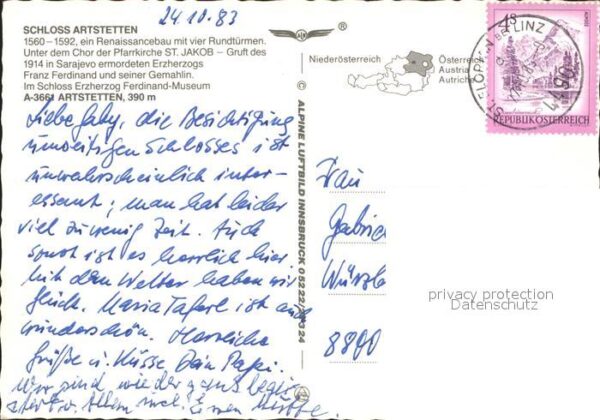 24.10.83
SCHLOSS ARTSTETTEN
1560–1592, ein Renaissancebau mit vier Rundtürmen.
Unter dem Chor der Pfarrkirche ST. JAKOB – Gruft des
1914 in Sarajevo ermordeten Erzherzogs
Franz Ferdinand und seiner Gemahlin.
Im Schloss Erzherzog Ferdinand-Museum
A-3661 ARTSTETTEN, 390 m
Liebe Gaby, die Besichtigung
Schlosses ist
unwahrscheinlich inter-
essant; man hat leider
viel zu wenig Zeit. Auch
sonst ist es herrlich hier.
Mit dem Wetter haben wir
Glück. Maria Taferl ist auch
wunderschön. Herzliche
Grüße u. Küsse Dein Papi.
Wir sind wieder ganz begei-
stert v. Allem
© ALPINE LUFTBILD INNSBRUCK 05222/
24
Niederösterreich
Österreich
Austria
Autriche
ST. FLORIAN BEI LINZ
REPUBLIK ÖSTERREICH
Frau
Gabrie
Würzb
8800
privacy protection
Datenschutz